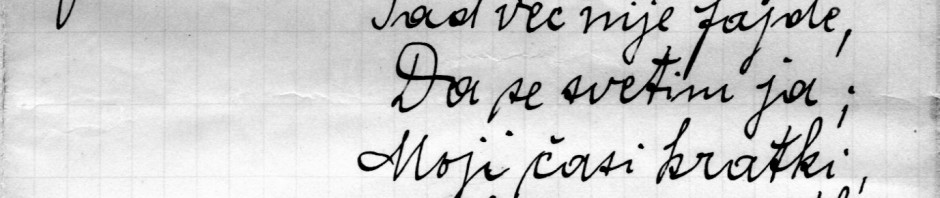 Tad već nije fajde,
Da se svetim ja;
Moji časi kratki,